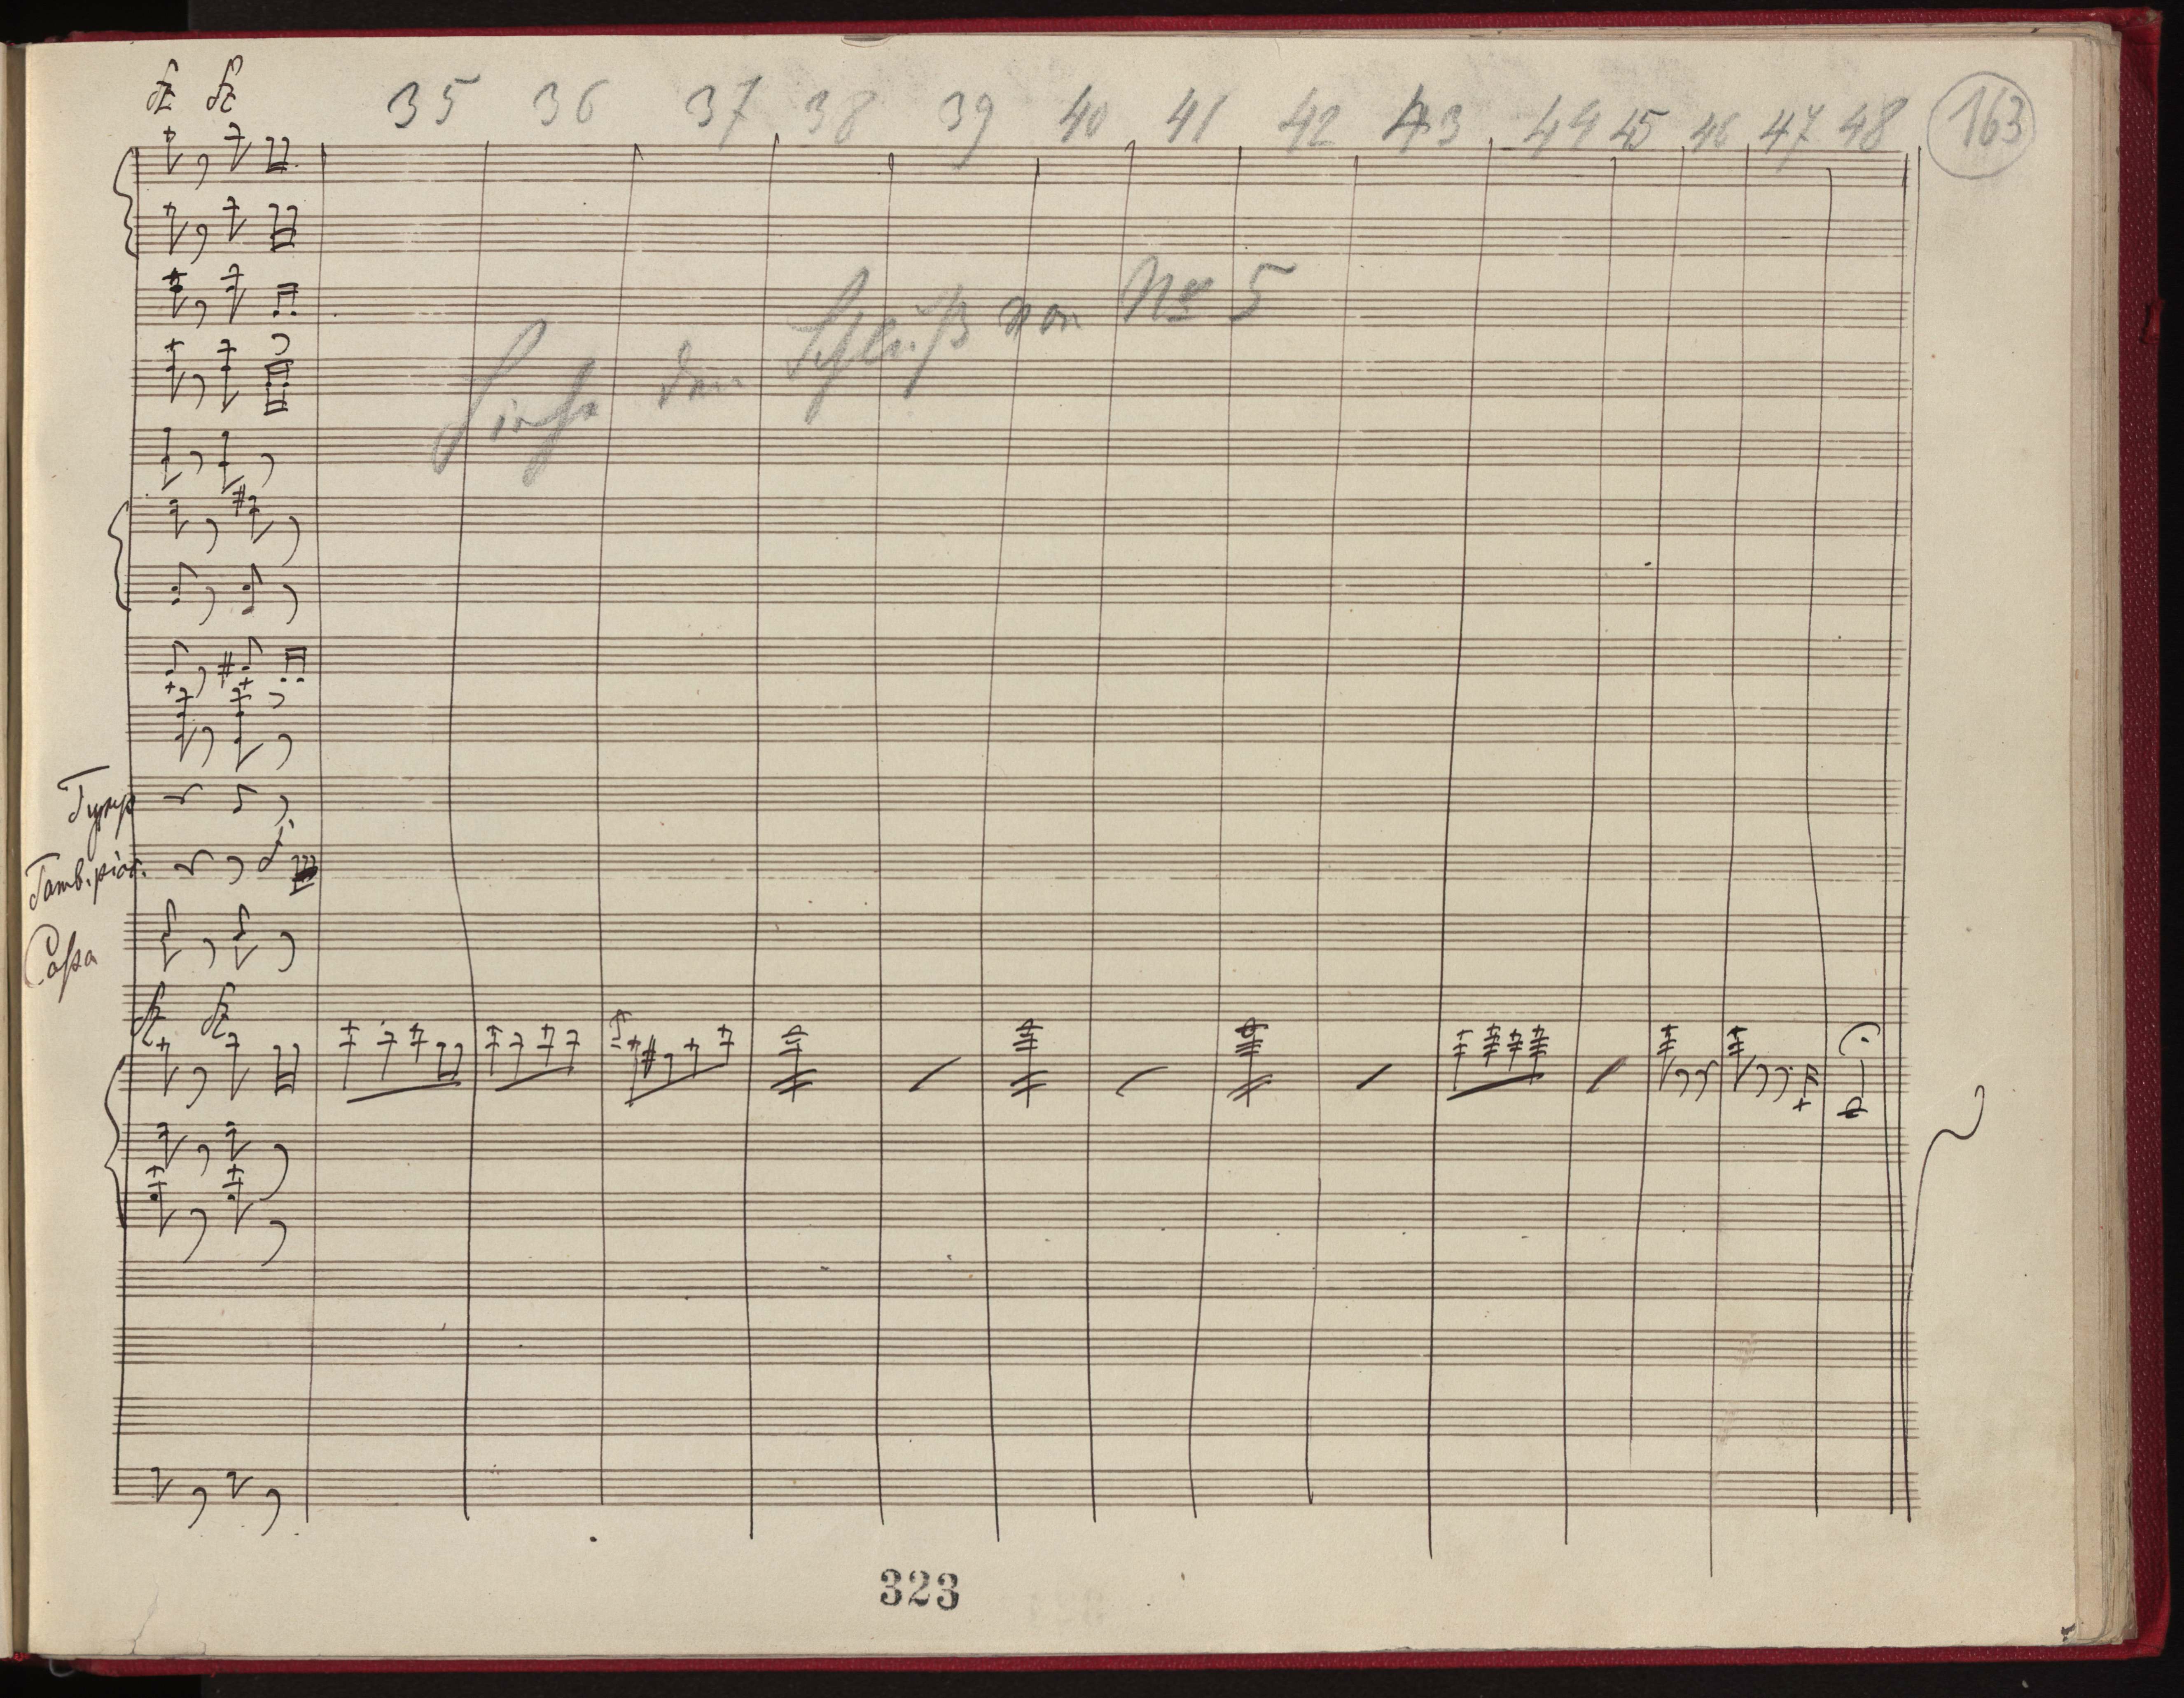 fz fz
35 36 37 38 39 40 41 42 43 44 45 46 47 48 163
Siehe den Schluß von No 5
Tymp
Tamb. picc.
Cassa
fz fz
323